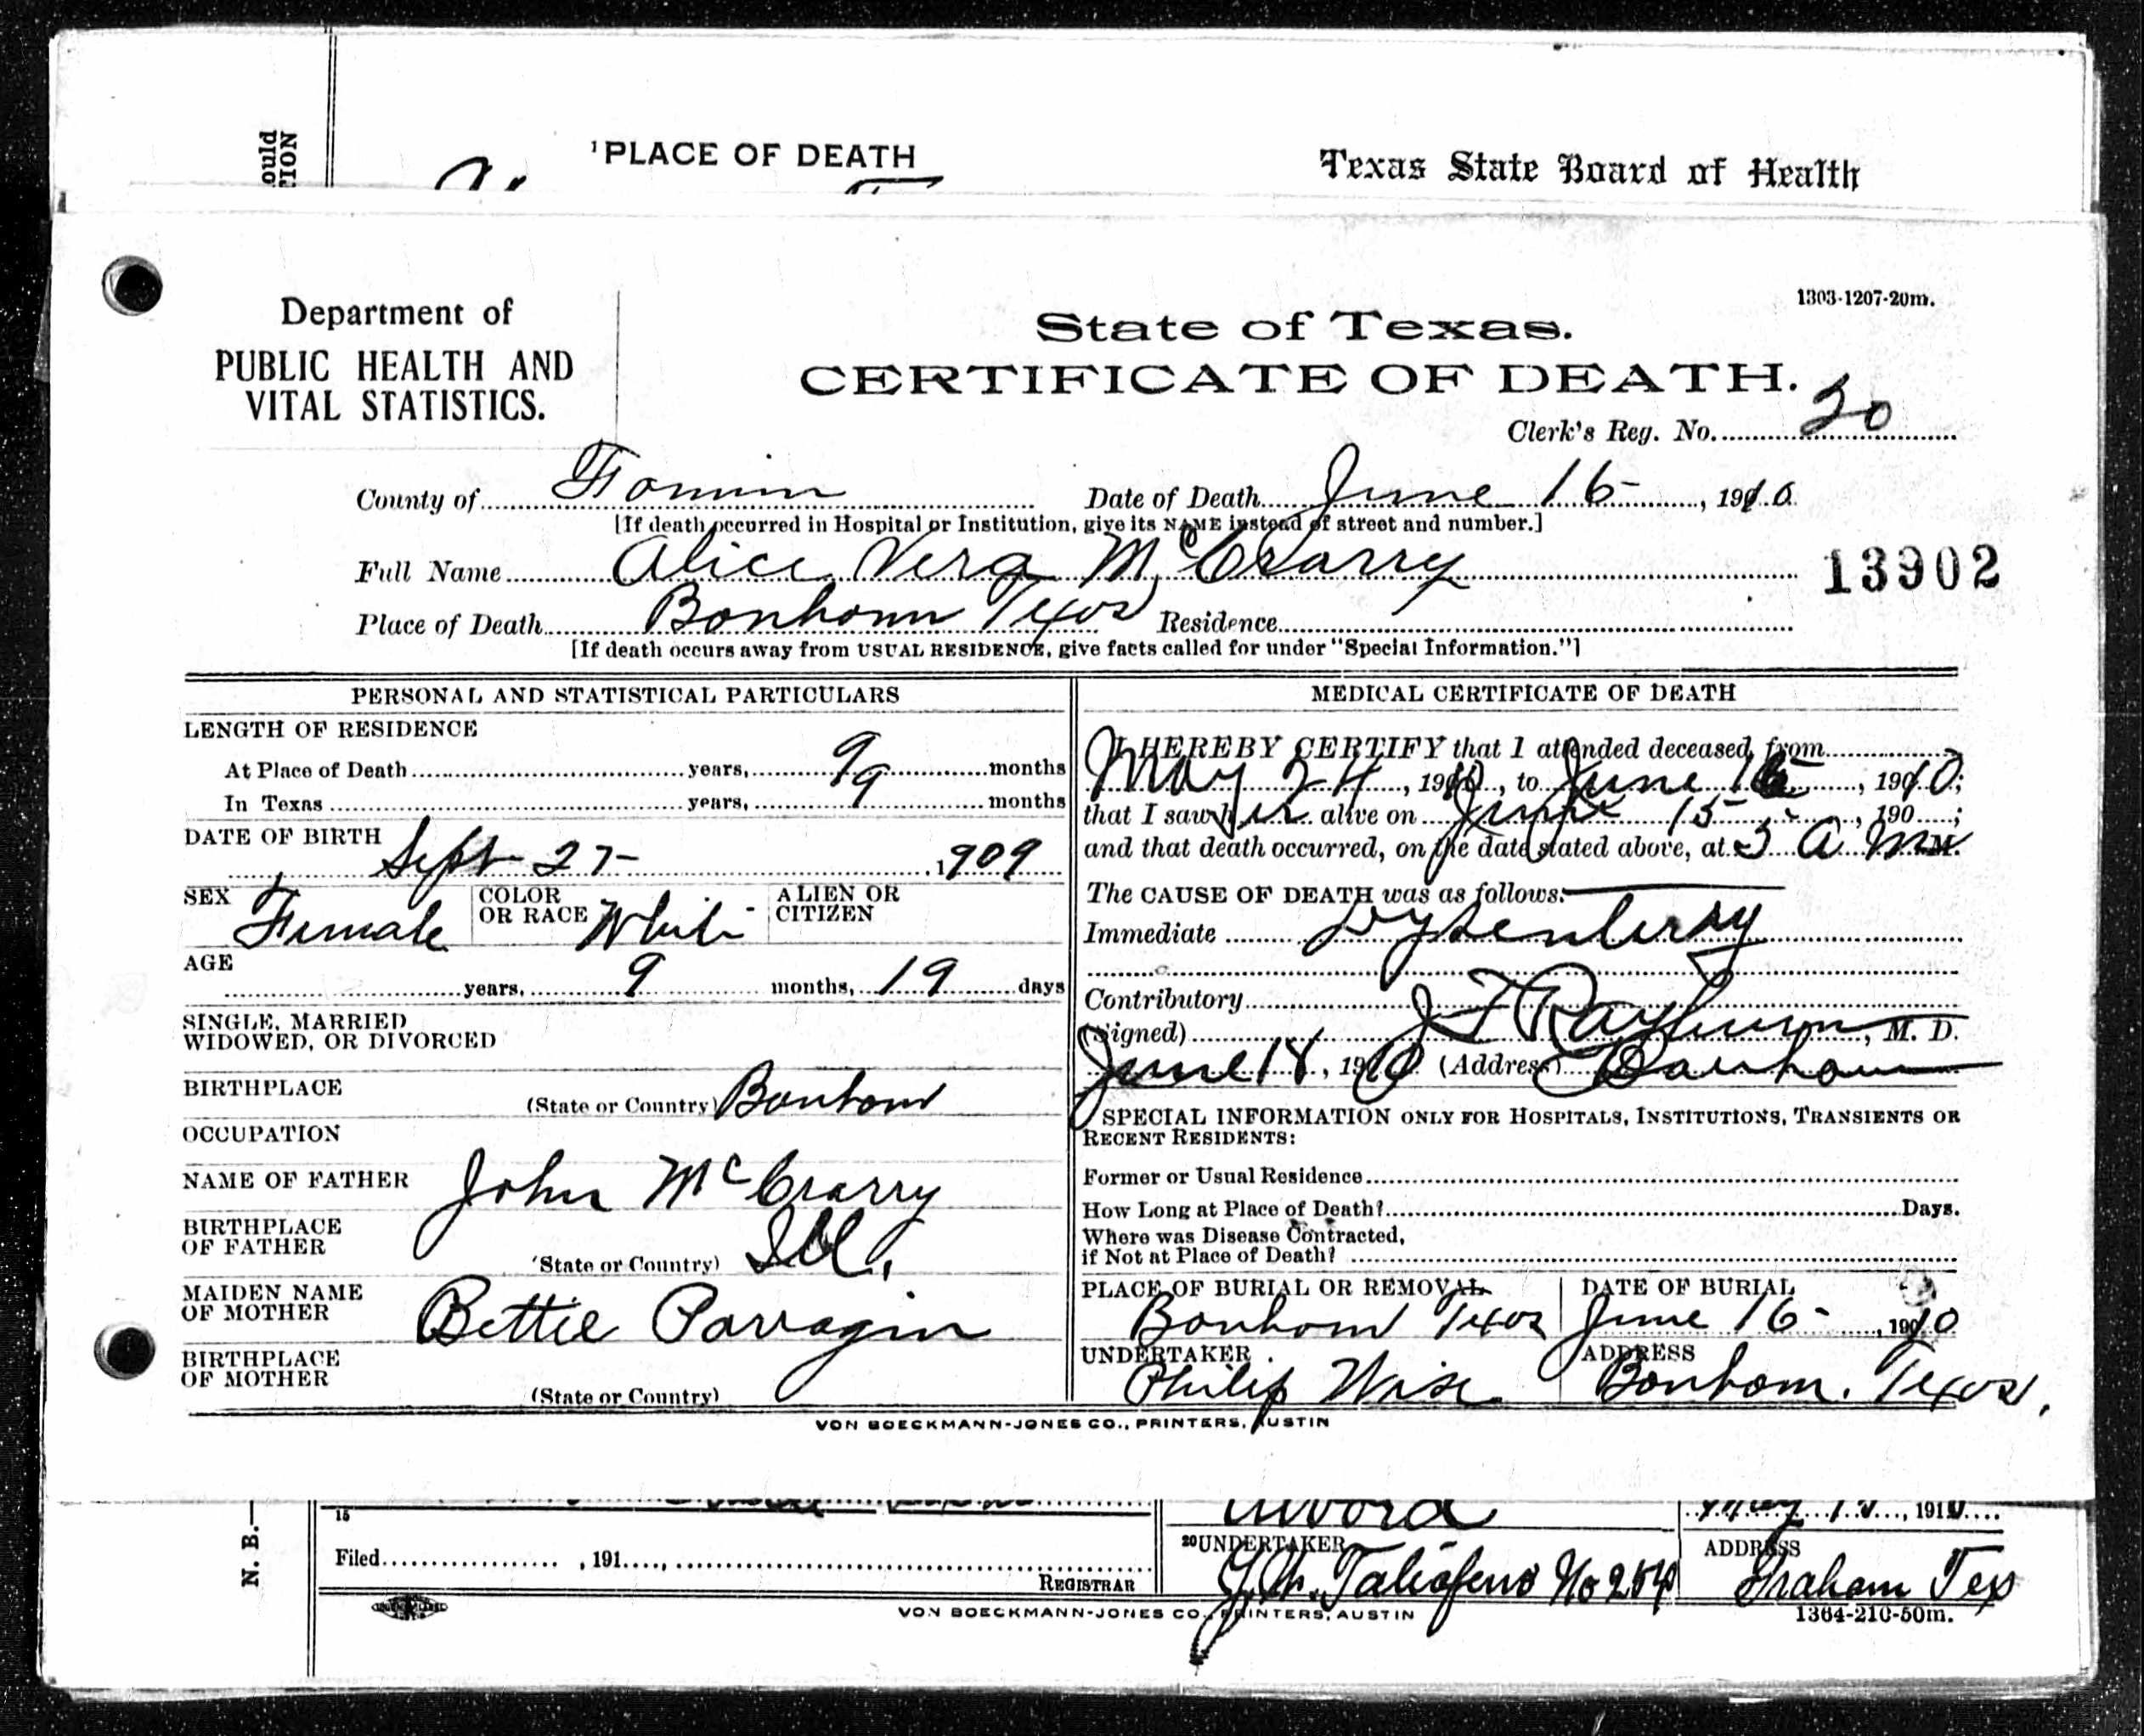 ould
TION
¹PLACE OF DEATH
Texas State Board of Health
1303-1207-20m.
Department of
PUBLIC HEALTH AND
VITAL STATISTICS.
State of Texas.
CERTIFICATE OF DEATH.
Clerk's Reg. No. 20
County of Fannin Date of Death June 16- , 1910
[If death occurred in Hospital or Institution, give its NAME instead of street and number.]
Full Name Alice Vera McCrarry 13902
Place of Death Bonham Texas Residence
[If death occurs away from USUAL RESIDENCE, give facts called for under "Special Information."]
PERSONAL AND STATISTICAL PARTICULARS
LENGTH OF RESIDENCE
At Place of Death years, 9 months
In Texas years, 9 months
DATE OF BIRTH
Sept 27- , 1909
SEX Female COLOR OR RACE White ALIEN OR CITIZEN
AGE
years, 9 months, 19 days
SINGLE, MARRIED
WIDOWED, OR DIVORCED
BIRTHPLACE
(State or Country) Bonham
OCCUPATION
NAME OF FATHER John McCrarry
BIRTHPLACE
OF FATHER
(State or Country) Ill.
MAIDEN NAME
OF MOTHER Bettie Parragin
BIRTHPLACE
OF MOTHER
(State or Country)
MEDICAL CERTIFICATE OF DEATH
I HEREBY CERTIFY that I attended deceased from
May 24, 1910, to June 16, 1910;
that I saw her alive on June 15 , 190 ;
and that death occurred, on the date stated above, at 5 A M M.
The CAUSE OF DEATH was as follows:
Immediate Dysentery
Contributory
(Signed) J T Rayburn, M. D.
June 18, 1910 (Address) Bonham
SPECIAL INFORMATION ONLY FOR HOSPITALS, INSTITUTIONS, TRANSIENTS OR
RECENT RESIDENTS:
Former or Usual Residence
How Long at Place of Death? Days.
Where was Disease Contracted,
if Not at Place of Death?
PLACE OF BURIAL OR REMOVAL DATE OF BURIAL
Bonham Texas June 16- , 1910
UNDERTAKER ADDRESS
Philip Wise Bonham. Texas.
VON BOECKMANN-JONES CO., PRINTERS, AUSTIN
N. B.—
15
Filed , 191 ,
REGISTRAR
Alvord
, 1910
20 UNDERTAKER ADDRESS
Taliaferro No 254 Graham Tex
VON BOECKMANN-JONES CO., PRINTERS, AUSTIN
1364-210-50m.